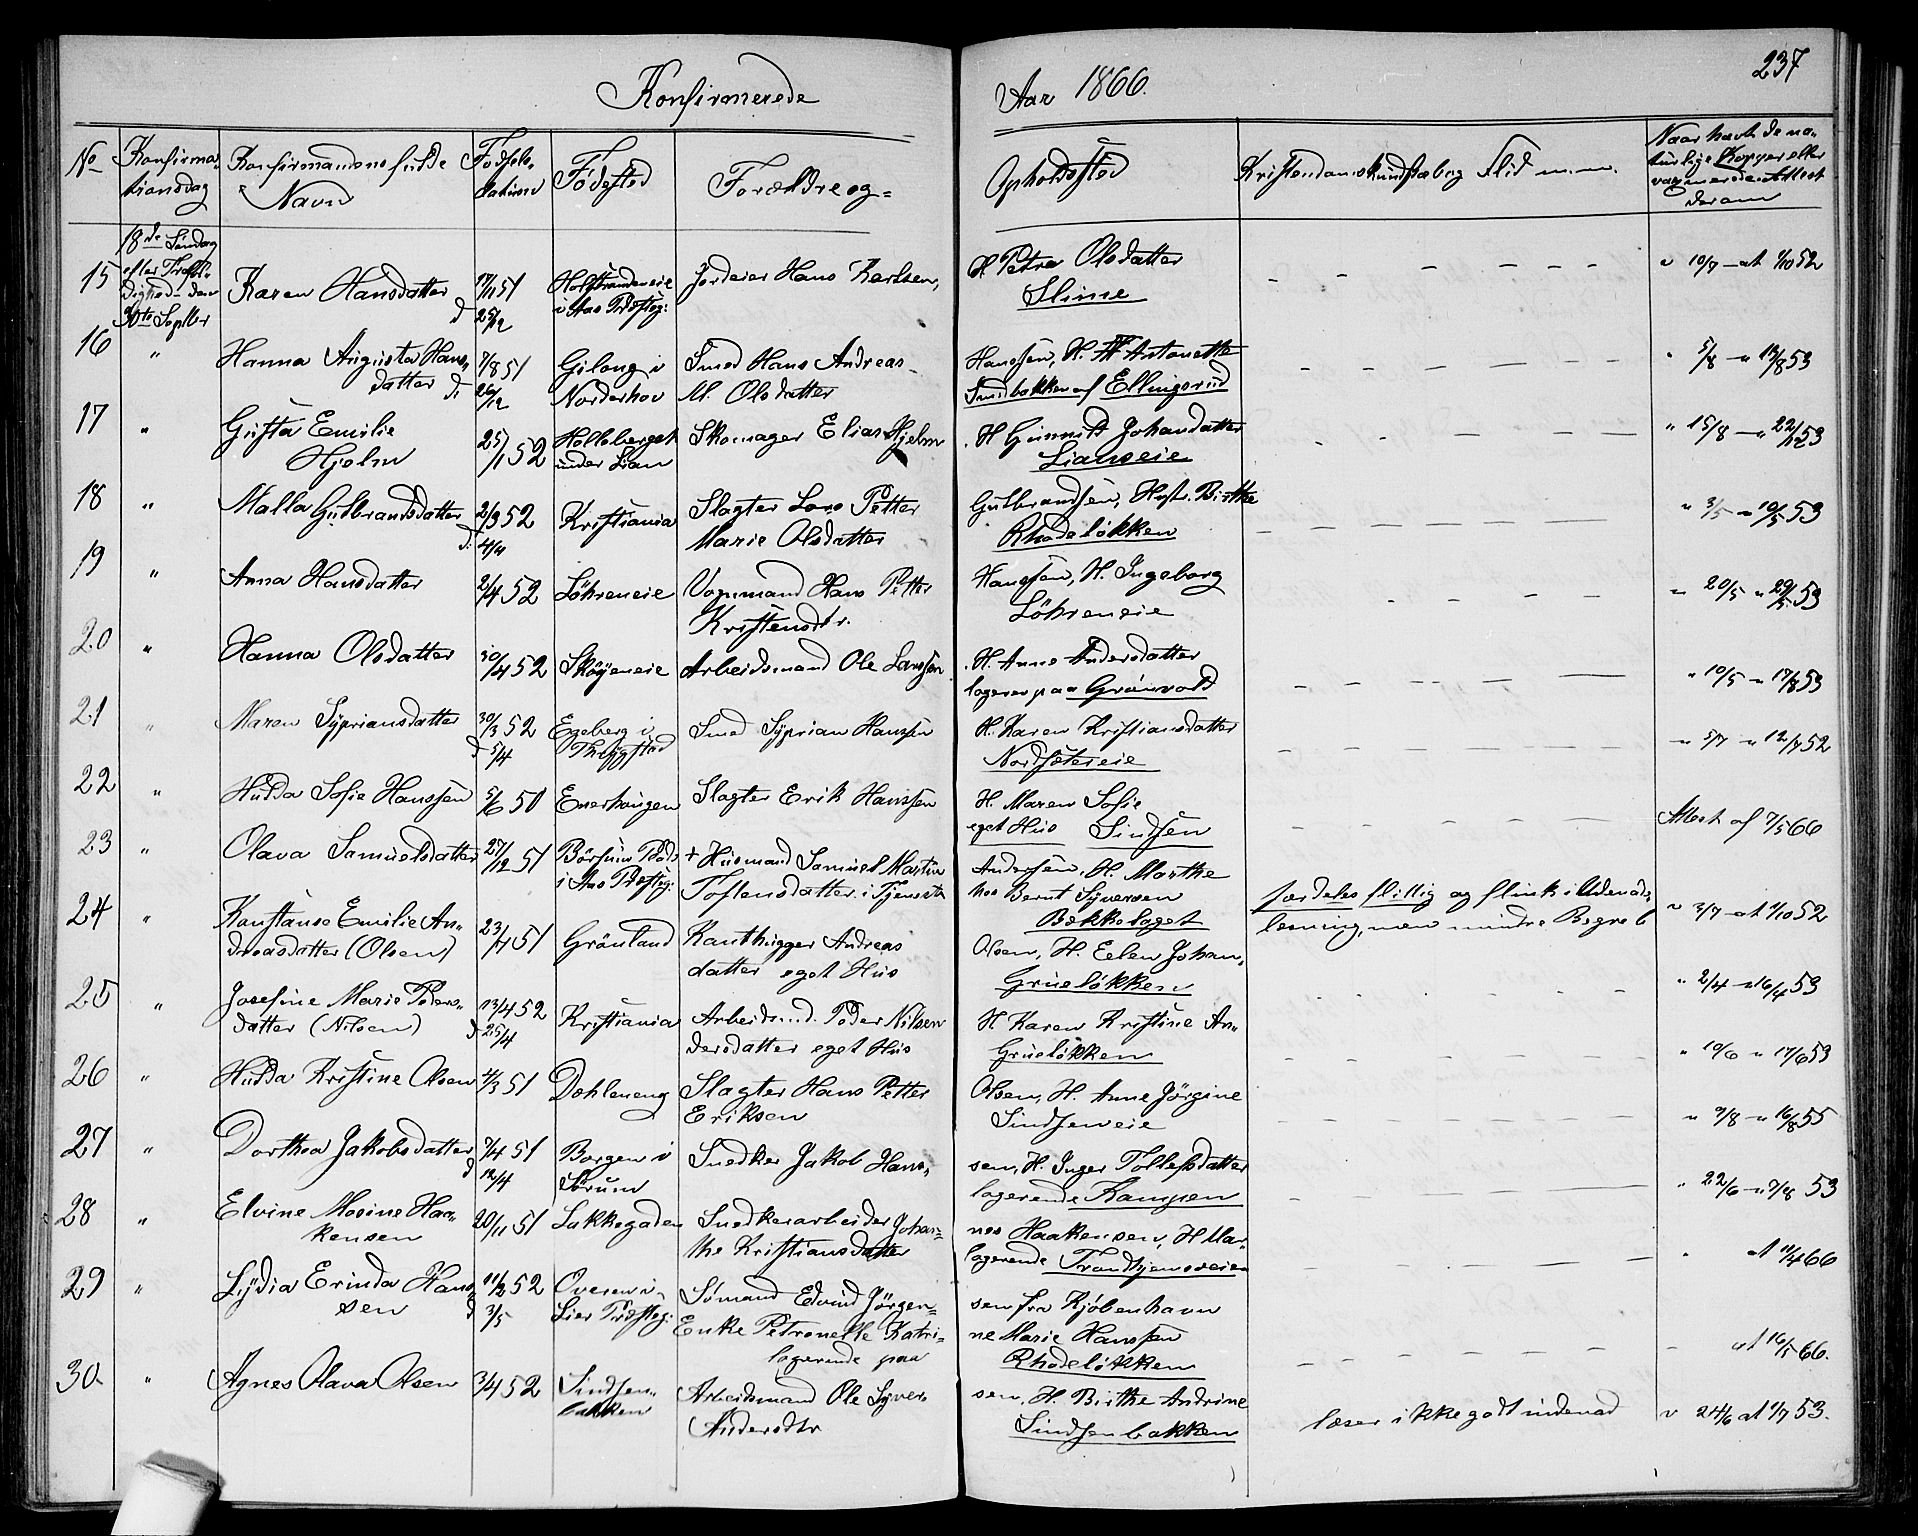 Konfirmerede
Aar 1866.
237
No
Konfirma-
tionsdag
Konfirmandens fulde
Navn
Fødsels-
datum
Fødested
Forældre og=
Opholdssted
Kristendomskundskab og Flid m.m.
Naar havt de na-
turlige Kopper eller
vaccinerede. Attest
derom
15
18de Søndag
efter Trefol-
dighed den
30te Septber
Karen Hansdatter
d
17/11 51
25/12
Holstrandeneie
i Aas Præsteg:
Jordeier Hans Karlsen,
H Petra Olsdatter
Slime
" 10/7 at 1/10 52
16
"
Hanna Augusta Hans-
datter d:
7/8 51
26/12
Gilong i
Norderhov
Smed Hans Andreas
M. Olsdatter
Hanssen, H. Antonette
Smedbakken af Ellingsrud
" 5/8 " 13/8 53
17
"
Gusta Emilie
Hjelm
25/1 52
Holleberget
under Lian
Skomager Elias Hjelm
H Gunnild Johansdatter
Lianseie
" 15/8 " 22/12 53
18
"
Malla Gulbrandsdatter
d:
2/3 52
4/4
Kristiania
Slagter Lars Petter
Marie Olsdatter
Gulbrandsen, Hustr. Birthe
Rhodeløkken
" 3/5 " 10/5 53
19
"
Anna Hansdatter
2/4 52
Løhreneie
Vognmand Hans Petter
Kristensdtr.
Hanssen, H. Ingeborg
Løhreneie
" 20/5 " 29/5 53
20
"
Hanna Olsdatter
30/4 52
Skøyeneie
Arbeidsmand Ole Larssen
H. Anne Andersdatter
logerer paa Grønvold
" 10/5 " 17/8 53
21
"
Maren Sypriansdatter
30/3 52
d 5/4
Egeberg i
Thrygstad
Smed Syprian Hanssen
H. Karen Kristiansdatter
Nordsætereie
" 5/7 " 12/7 52
22
"
Hulda Sofie Hanssen
5/6 50
Enerhaugen
Slagter Erik Hanssen
H. Maren Sofie
eget Hus Sindsen
Attest af 7/5 66
23
"
Olava Samuelsdatter
27/12 51
i Aas Præsteg:
+ Husmand Samuel Martin
Toftensdatter i Tjeneste
Anderssen, H. Marthe
hos Bernt Syversen
Bækkelaget
særdeles flittig og flink i Udenads-
læsning, men mindre Begreb
" 3/7 at 1/10 52
24
"
Konstanse Emilie An-
dreasdatter (Olsen)
23/7 51
Grønland
Kanthugger Andreas
datter eget Hus
Olsen, H. Eelen Johan,
Grüeløkken
" 2/4 " 16/4 53
25
"
Josefine Marie Peders-
datter (Nilsen)
13/4 52
d 25/4
Kristiania
Arbeidsmd. Peder Nilsen
dersdatter eget Hus
H Karen Kristine An-
Grüeløkken
" 10/6 " 17/6 53
26
"
Hulda Kristine Olsen
4/3 51
Dehleneng
Slagter Hans Petter
Eriksen
Olsen, H. Anne Jørgine
Sindseneie
" 9/8 " 16/8 55
27
"
Dorthea Jakobsdatter
d
7/4 51
12/4
Borgen i
Sørum
Snedker Jakob Hans,
sen, H. Inger Tollefsdatter
logerende Kampen
" 22/6 " 7/8 53
28
"
Elvine Mosine Haa-
kensen
20/11 51
Lakkegaden
Snedkerarbeider Johan-
the Kristiansdatter
nes Haakensen, H Mar-
logerende Trondhjemsveien
" at 11/4 66
29
"
Lydia Erinda Hans-
sen
d
11/2 52
3/5
Overen i
Lier Præsteg:
Sømand Edvind Jørgen=
Enke Petronelle Katri-
logerende paa
sen fra Kjøbenhavn
ne Marie Hanssen
Rhodeløkken
" at 16/5 66.
30
"
Agnes Olava Olsen
3/4 52
Sindsen-
bakken
Arbeidsmand Ole Syver-
Andersdtr
sen, H. Birthe Andrine
Sindsenbakken
læser ikke godt indenad
" 24/6 at 1/7 53.